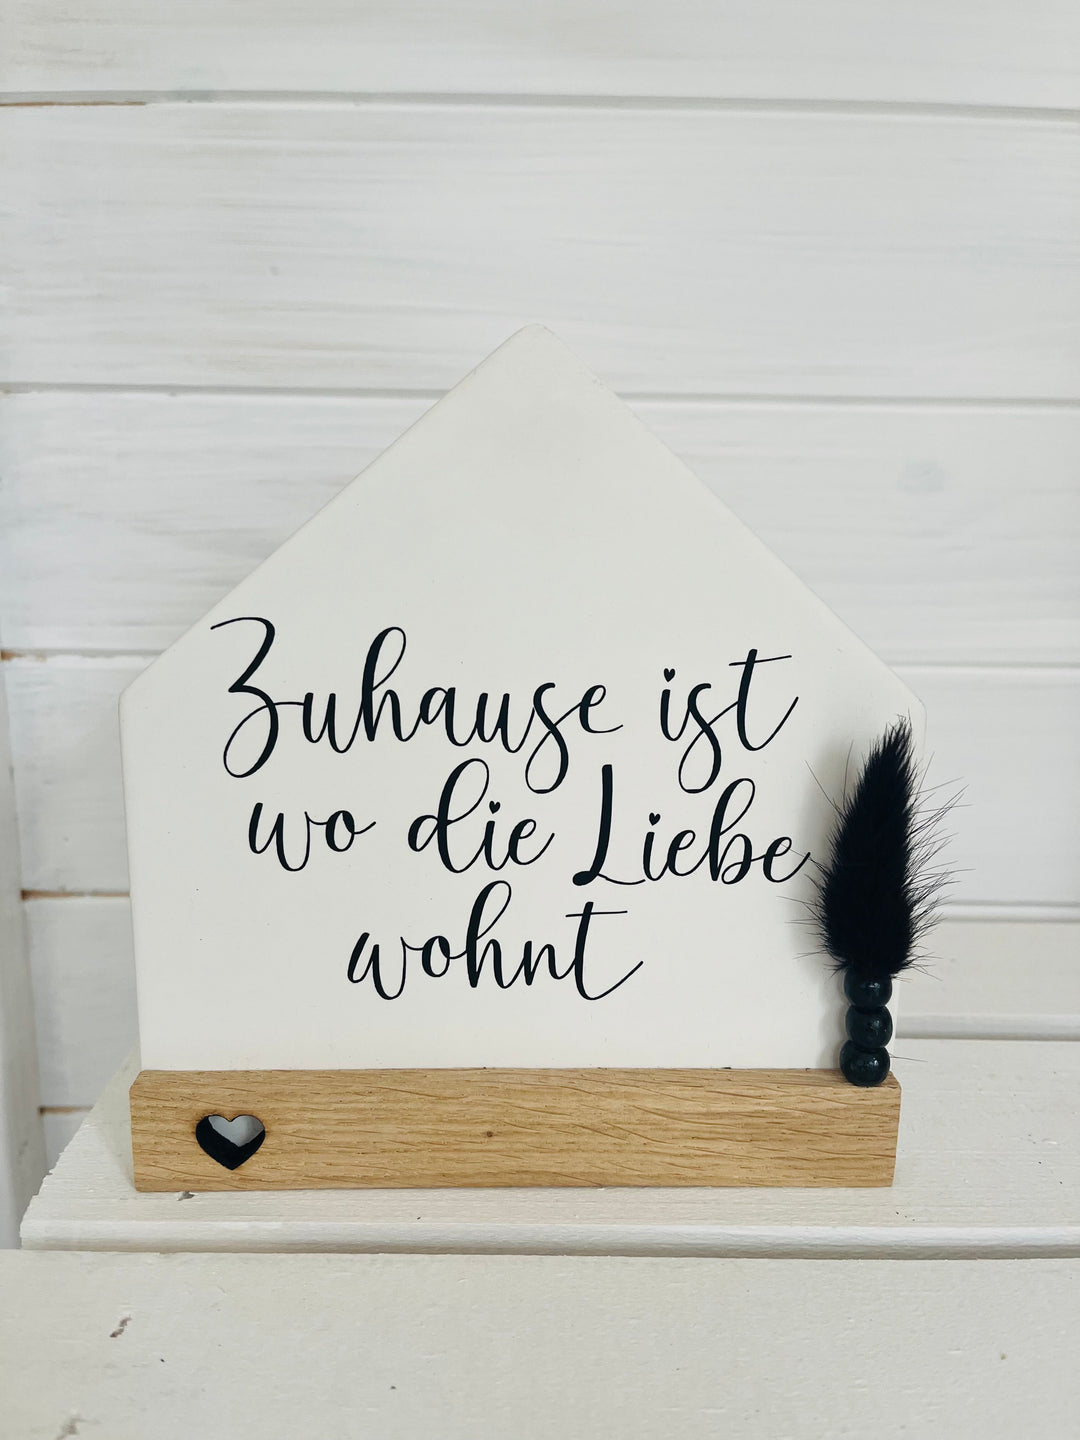 Zuhause ist
wo die Liebe
wohnt